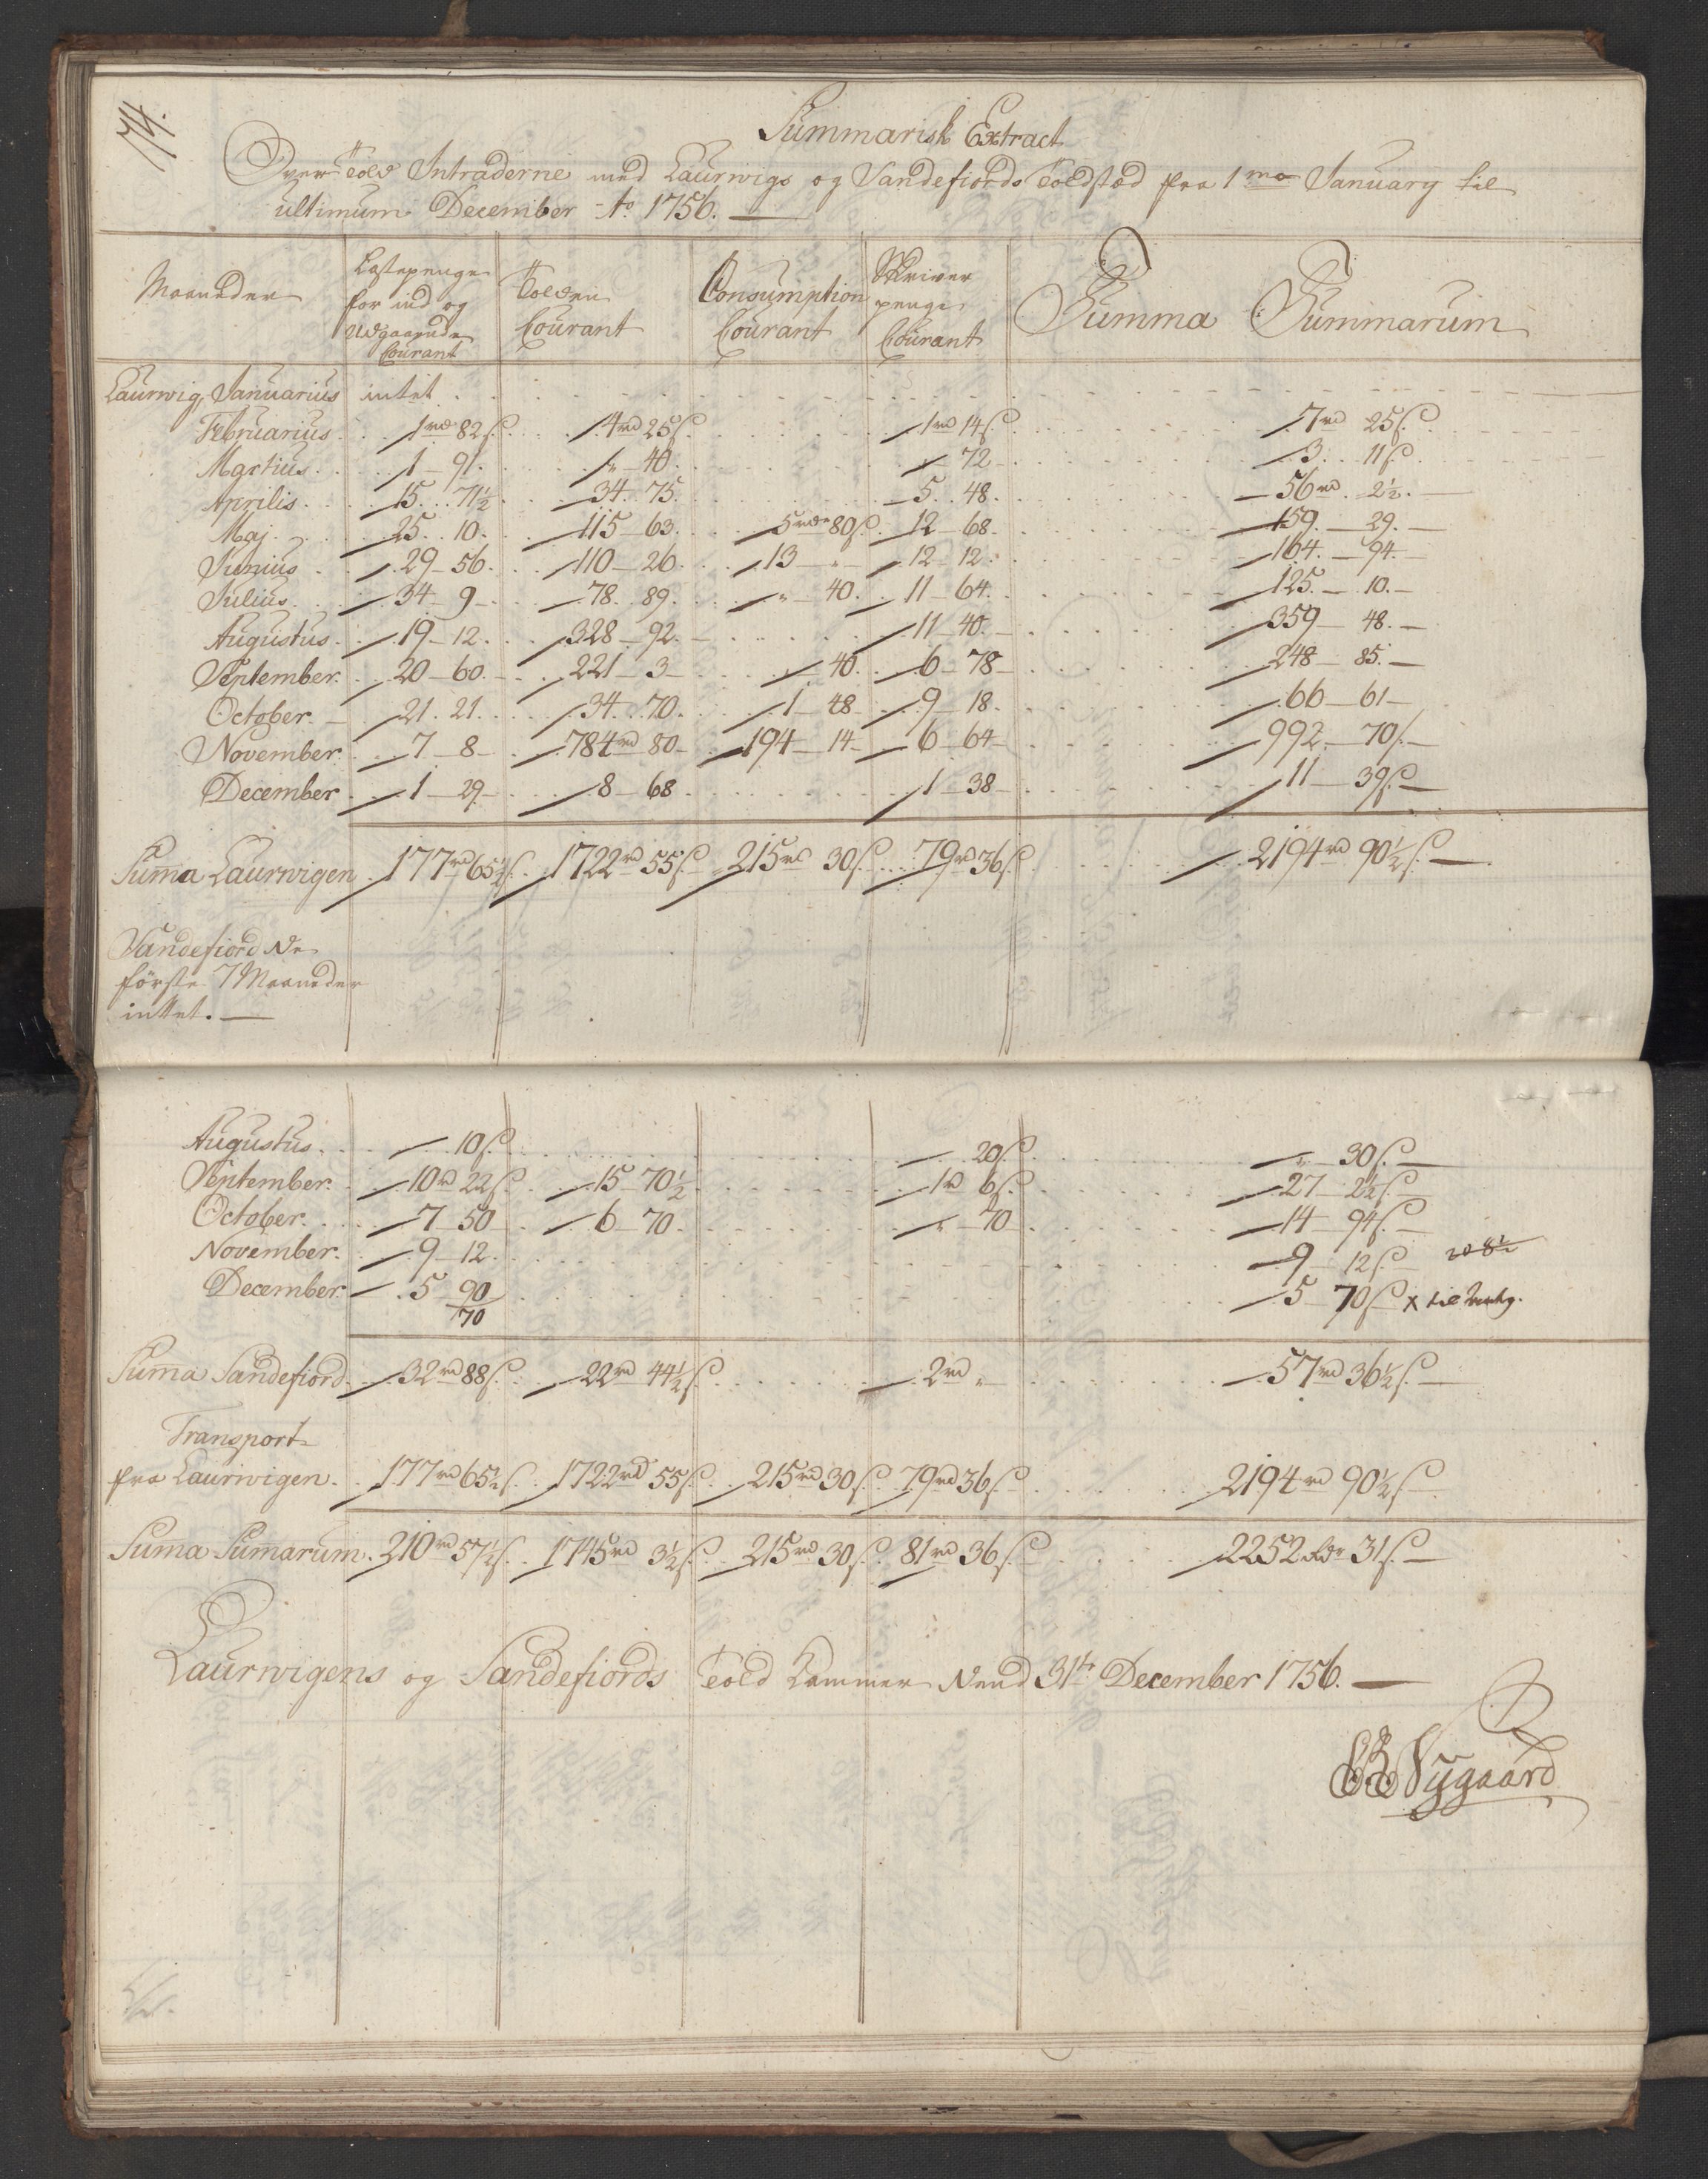 74.
Summarisk Extract
Over Told Intraderne med Laurwigs og Sandefiords Toldstæd fra 1ma January til
ultimum December Ao 1756. —
Maaneder | Læstepenge for ind og Udgaaende Courant | Tolden Courant | Consumption Courant | Skriver penge Courant | Summa Summarum
Laurwig, Januarius intet
Februarius. 1rd 82ß. 4rd 25ß. 1rd 14ß. 7rd 25ß.
Martius. 1 – 91. „ – 40. „ – 72 3. 11ß.
Aprilis. 15. 71½ 34. 75. 5. 48. 56rd. 2½. —
Maj. 25. 10. 115 – 63. 5rd 80ß. 12 – 68. 159. – 29. —
Junius 29 – 56. 110 – 26. 13 – „ – 12 – 12. 164. – 94. —
Julius. 34 – 9 – 78. 89. „ – 40. 11 – 64. 125. – 10. —
Augustus. 19 – 12. 328 – 92. – 11 – 40. – 359 – 48. —
September. 20 – 60. – 221 – 3 – „ – 40. 6 – 78 – 248 – 85. —
October. – 21. 21. 34. 70. 1 – 48 9 – 18. 66 – 61 –
November. 7 – 8 – 784rd 80 – 194 – 14 – 6 – 64 – 992. – 70ß. —
December 1 – 29. – 8 – 68 1 – 38 – 11 – 39ß. —
Suma Laurwigen 177rd 65½ß. 1722rd 55ß. 215rd 30ß. 79rd 36ß. 2194rd 90½ß. —
Sandefiord de
første 7 Maaneder
inttet. —
Augustus. 10ß. 20ß. „ – 30ß. —
September. 10rd 22ß. 15 – 70½ 1rd 6ß. 27 – 2½ß.
October. 7 – 50 6 – 70. „ – 70 14 – 94ß. –
November. 9 – 12. 9 – 12ß.
December. 5 – 90 5 – 70ß x til
70
Suma Sandefiord. 32rd 88ß. 22rd 44½ß. 2rd „ – 57rd 36½ß. —
Transport
fra Laurwigen. 177rd 65½ß. 1722rd 55ß. 215rd 30ß. 79rd 36ß. 2194rd 90½ß
Suma Sumarum. 210rd 57½ß. 1745rd 3½ß. 215rd 30ß. 81rd 36ß. 2252 Rdr 31ß. —
Laurwigens og Sandefiords Told Kammer dend 31te December 1756. —
Nygaard